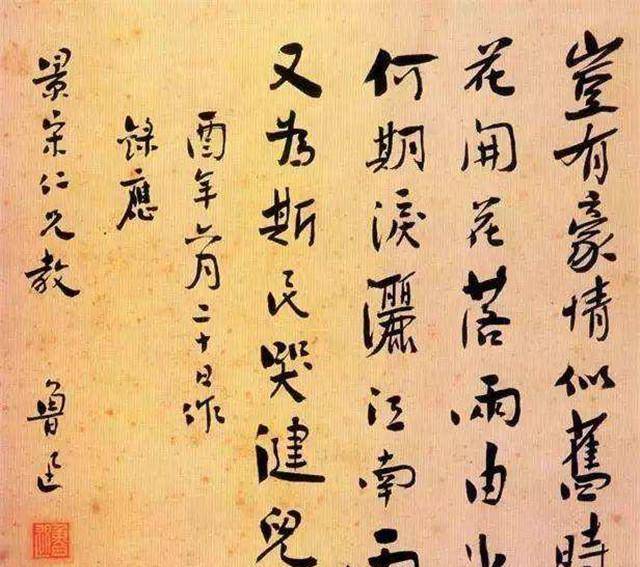 豈有豪情似舊時
花開花落兩由
何期淚灑江南
又為斯民哭健兒
酉年六月二十日作
錄應
景宋仁兄教
魯迅